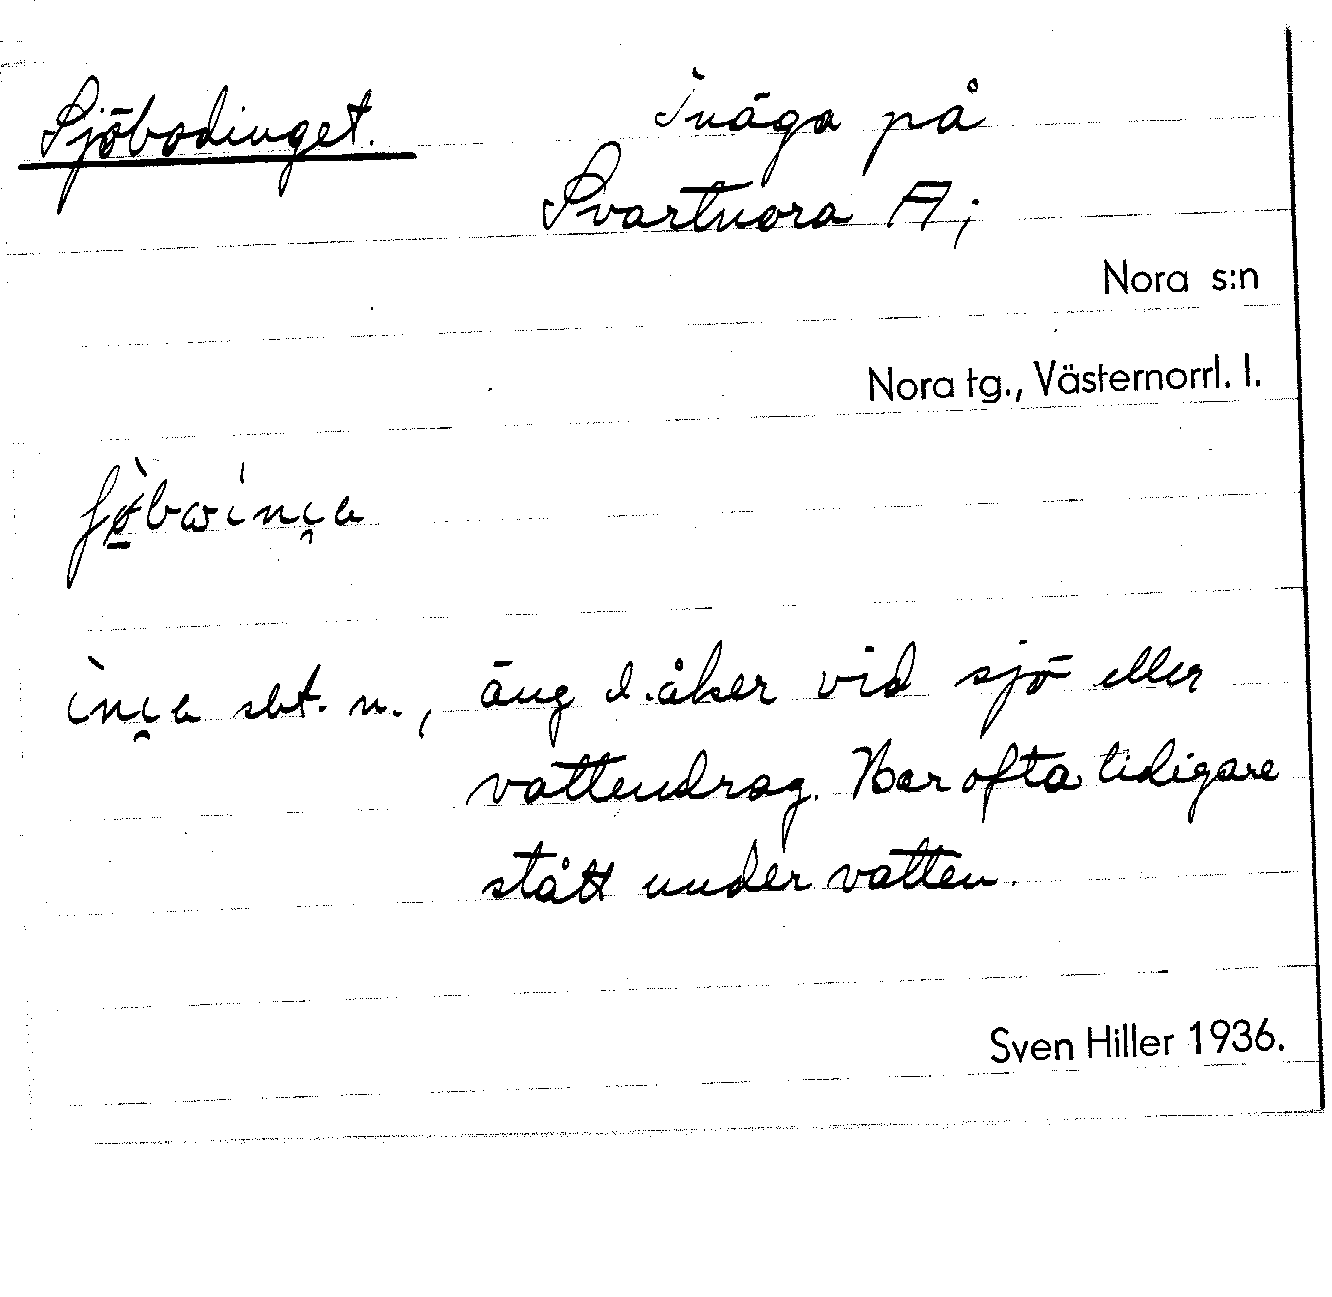 Sjöbodinget. Inäga på
Svartnora A;
Nora s:n
Nora tg., Västernorrl. l.
sbt. n., äng l. åker vid sjö eller
vattendrag. Har ofta tidigare
stått under vatten.
Sven Hiller 1936.